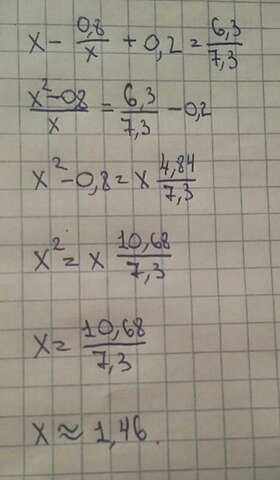 x - 0,8/x + 0,2 = 6,3/7,3
x²-0,8/x = 6,3/7,3 - 0,2
x² - 0,8 = x 4,84/7,3
x² = x 10,68/7,3
x = 10,68/7,3
x ≈ 1,46.